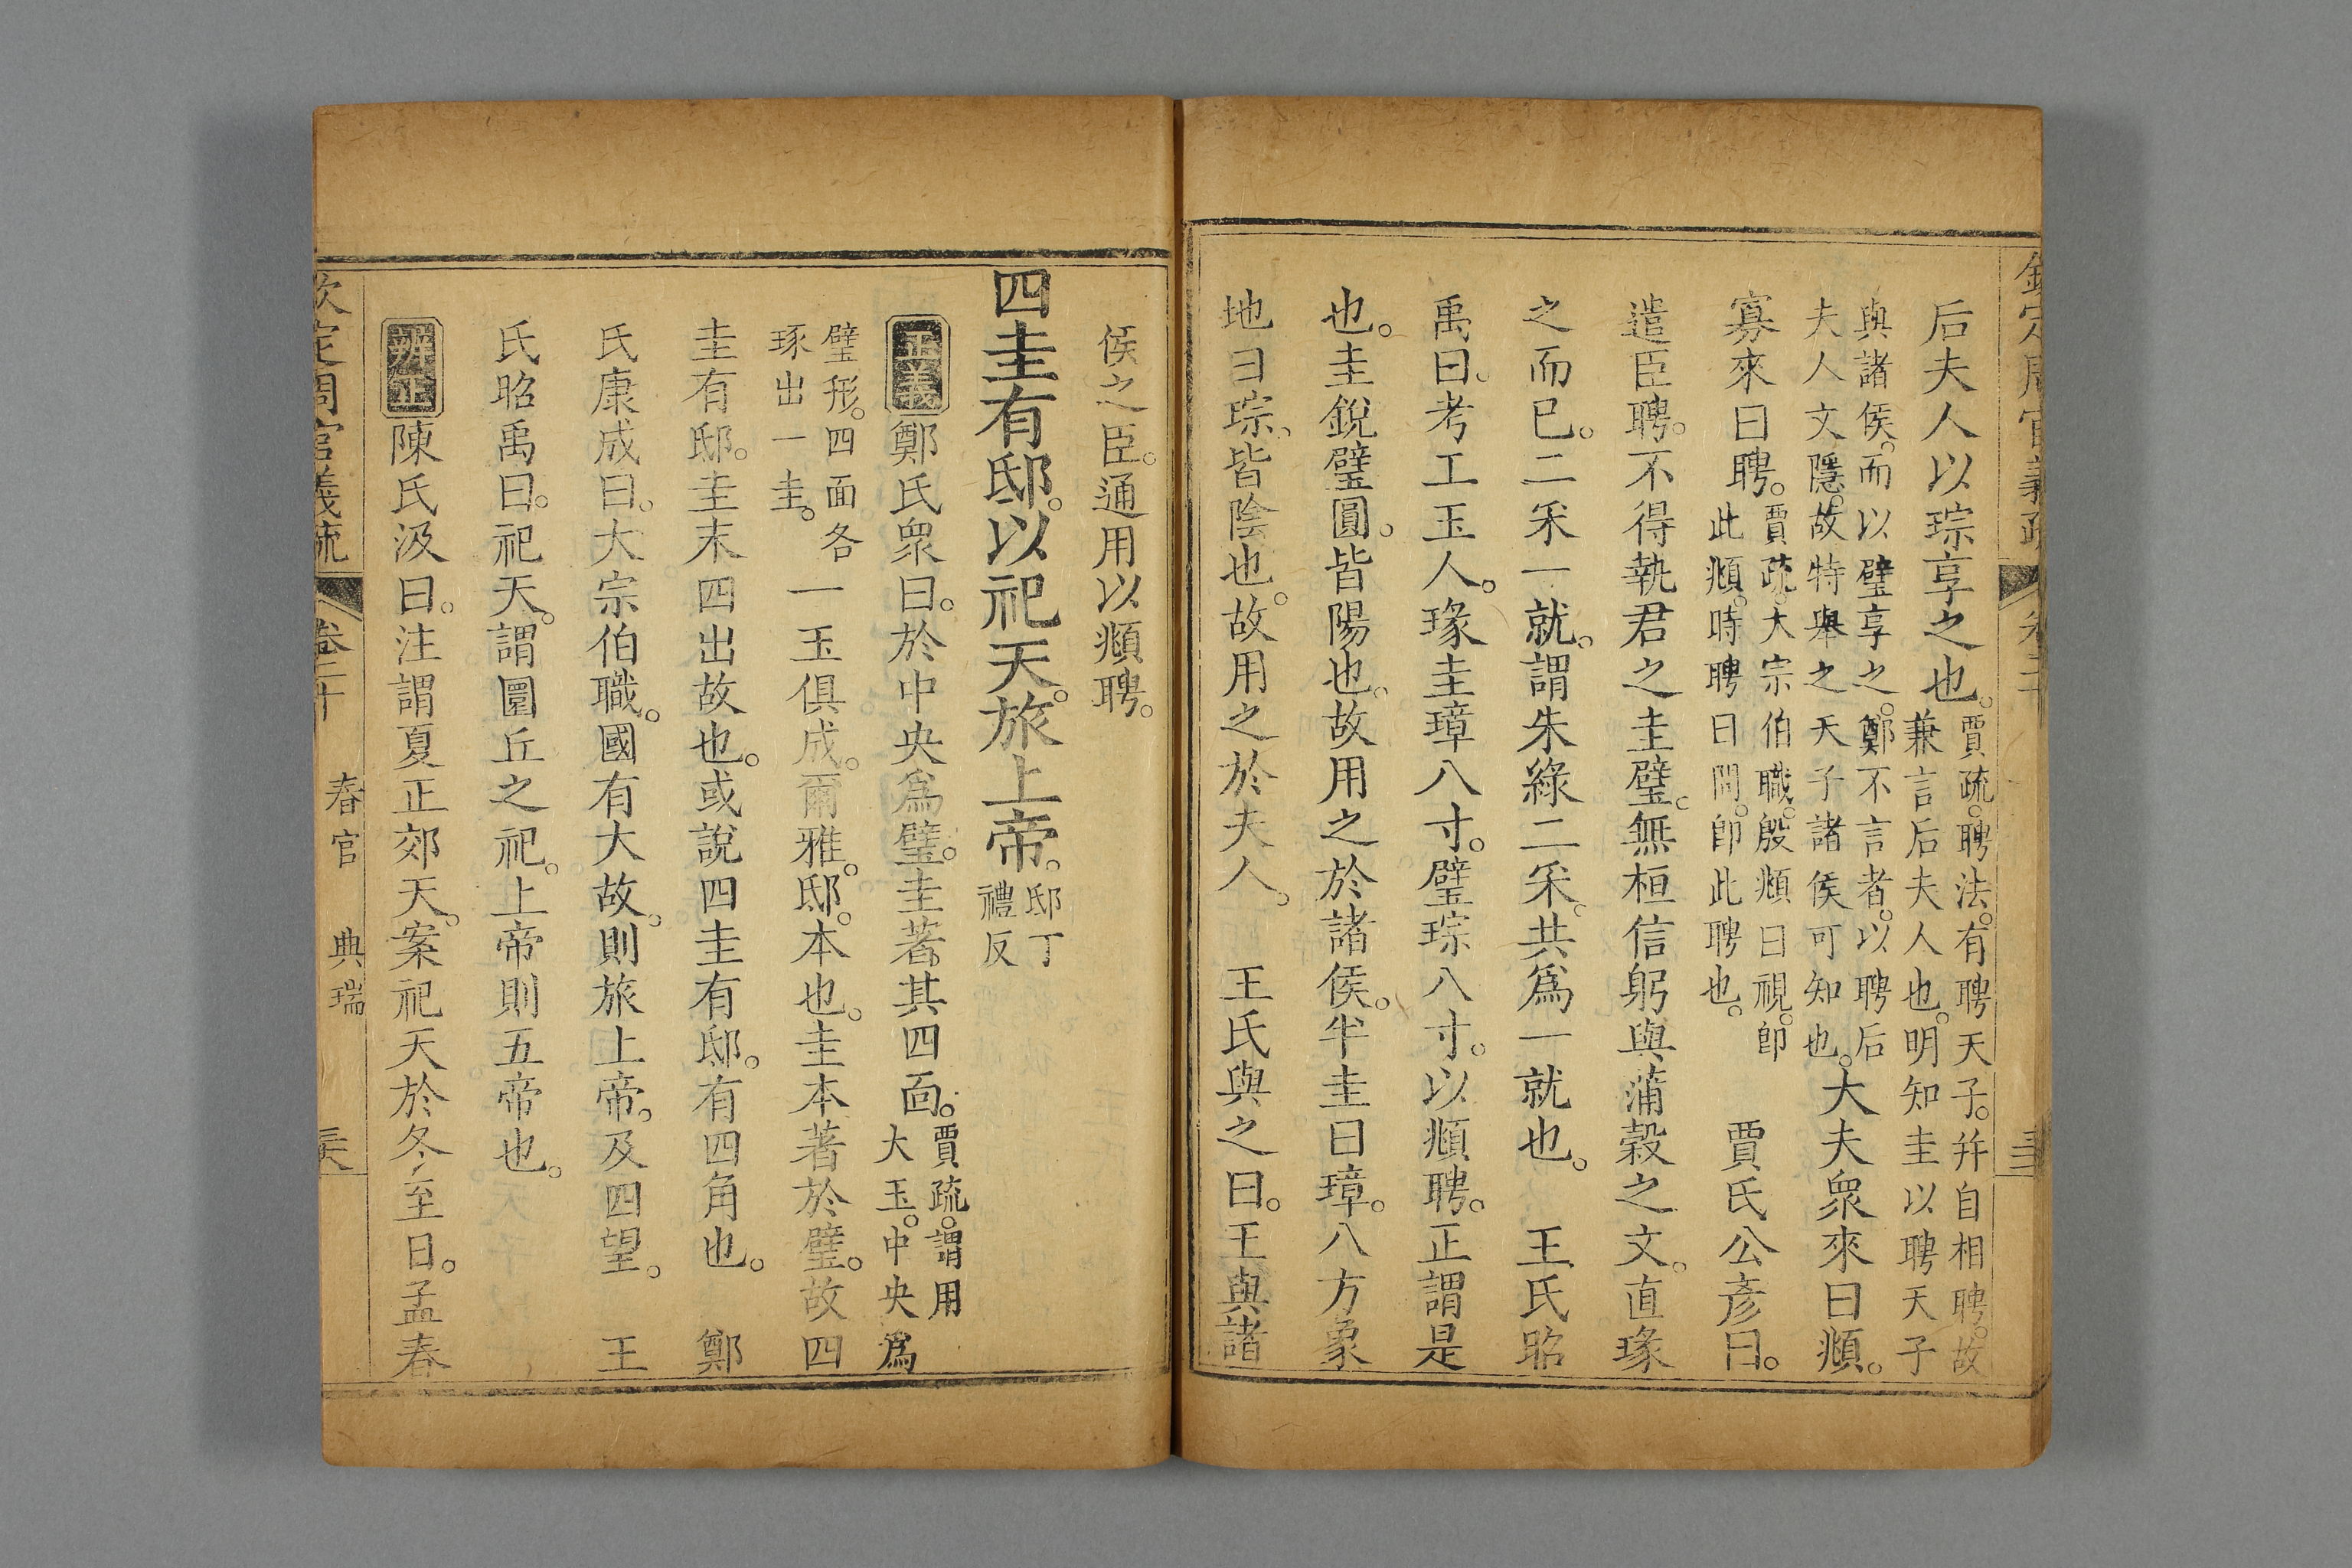 后夫人以琮享之也。賈疏。聘法。有聘天子。幷自相聘。故
兼言后夫人也。明知圭以聘天子
與諸侯。而以璧享之。鄭不言者。以聘后
夫人文隱。故特舉之天子諸侯可知也。大夫眾來曰頫。
寡來曰聘。賈疏。大宗伯職。殷頫曰視。卽
此頫。時聘曰問。卽此聘也。賈氏公彥曰。
遣臣聘。不得執君之圭璧。無桓信躬與蒲穀之文。直瑑
之而已。二采一就。謂朱綠二采。共爲一就也。 王氏昭
禹曰。考工玉人。瑑圭璋八寸。璧琮八寸。以頫聘。正謂是
也。圭銳璧圓。皆陽也。故用之於諸侯。半圭曰璋。八方象
地曰琮。皆陰也。故用之於夫人。 王氏與之曰。王與諸
侯之臣。通用以頫聘。
四圭有邸。以祀天。旅上帝。邸丁
禮反
正義鄭氏眾曰。於中央爲璧。圭著其四面。賈疏。謂用
大玉。中央爲
璧形。四面各
琢出一圭。一玉俱成。爾雅。邸。本也。圭本著於璧。故四
圭有邸。圭末四出故也。或說四圭有邸。有四角也。 鄭
氏康成曰。大宗伯職。國有大故。則旅上帝。及四望。 王
氏昭禹曰。祀天。謂圜丘之祀。上帝則五帝也。
辨正陳氏汲曰。注謂夏正郊天。案祀天於冬至日。孟春
欽定周官義疏 卷二十 春官 典瑞